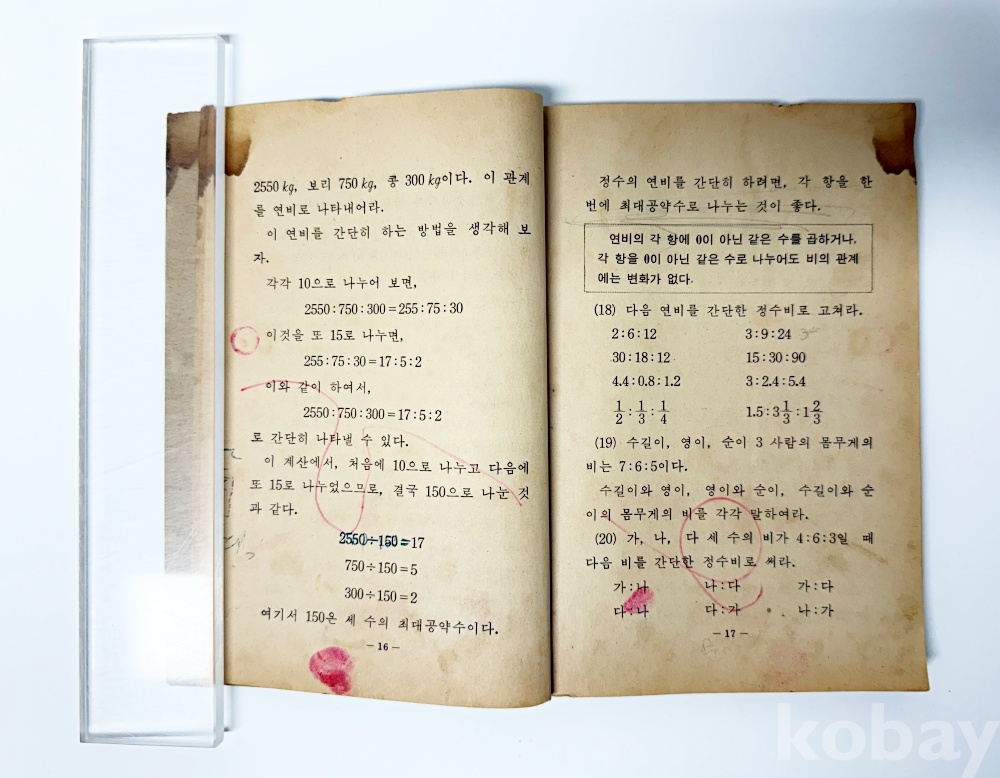 2550 kg, 보리 750 kg, 콩 300 kg이다. 이 관계
를 연비로 나타내어라.
이 연비를 간단히 하는 방법을 생각해 보
자.
각각 10으로 나누어 보면,
2550:750:300=255:75:30
이것을 또 15로 나누면,
255:75:30=17:5:2
이와 같이 하여서,
2550:750:300=17:5:2
로 간단히 나타낼 수 있다.
이 계산에서, 처음에 10으로 나누고 다음에
또 15로 나누었으므로, 결국 150으로 나눈 것
과 같다.
2550÷150=17
750÷150=5
300÷150=2
여기서 150은 세 수의 최대공약수이다.
— 16 —
정수의 연비를 간단히 하려면, 각 항을 한
번에 최대공약수로 나누는 것이 좋다.
연비의 각 항에 0이 아닌 같은 수를 곱하거나,
각 항을 0이 아닌 같은 수로 나누어도 비의 관계
에는 변화가 없다.
(18) 다음 연비를 간단한 정수비로 고쳐라.
2:6:12 3:9:24
30:18:12 15:30:90
4.4:0.8:1.2 3:2.4:5.4
1/2:1/3:1/4 1.5:3 1/3:1 2/3
(19) 수길이, 영이, 순이 3 사람의 몸무게의
비는 7:6:5이다.
수길이와 영이, 영이와 순이, 수길이와 순
이의 몸무게의 비를 각각 말하여라.
(20) 가, 나, 다 세 수의 비가 4:6:3일 때
다음 비를 간단한 정수비로 써라.
가:나 나:다 가:다
다:나 다:가 나:가
— 17 —
kobay